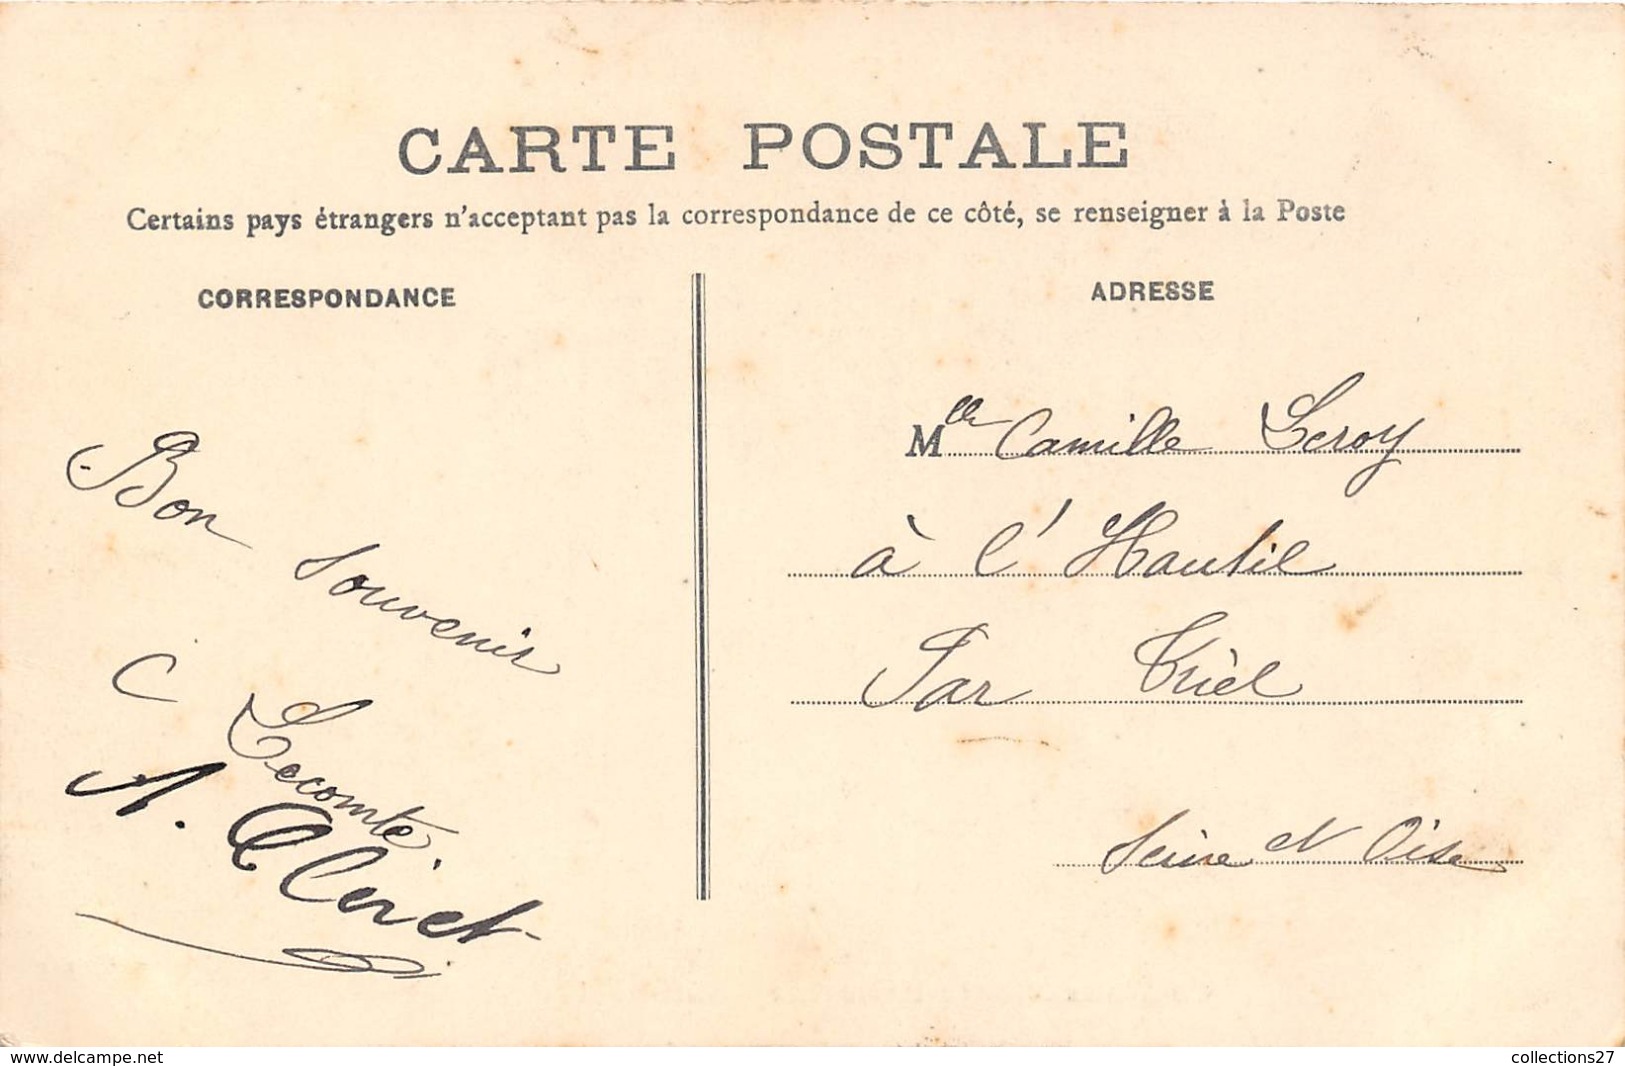 CARTE POSTALE
Certains pays étrangers n'acceptant pas la correspondance de ce côté, se renseigner à la Poste
CORRESPONDANCE
Bon souvenir
C Lecomte
A. Clinet
ADRESSE
Mlle Camille Leroy
à l'Hautil
Par Triel
Seine et Oise
www.delcampe.net
collections27